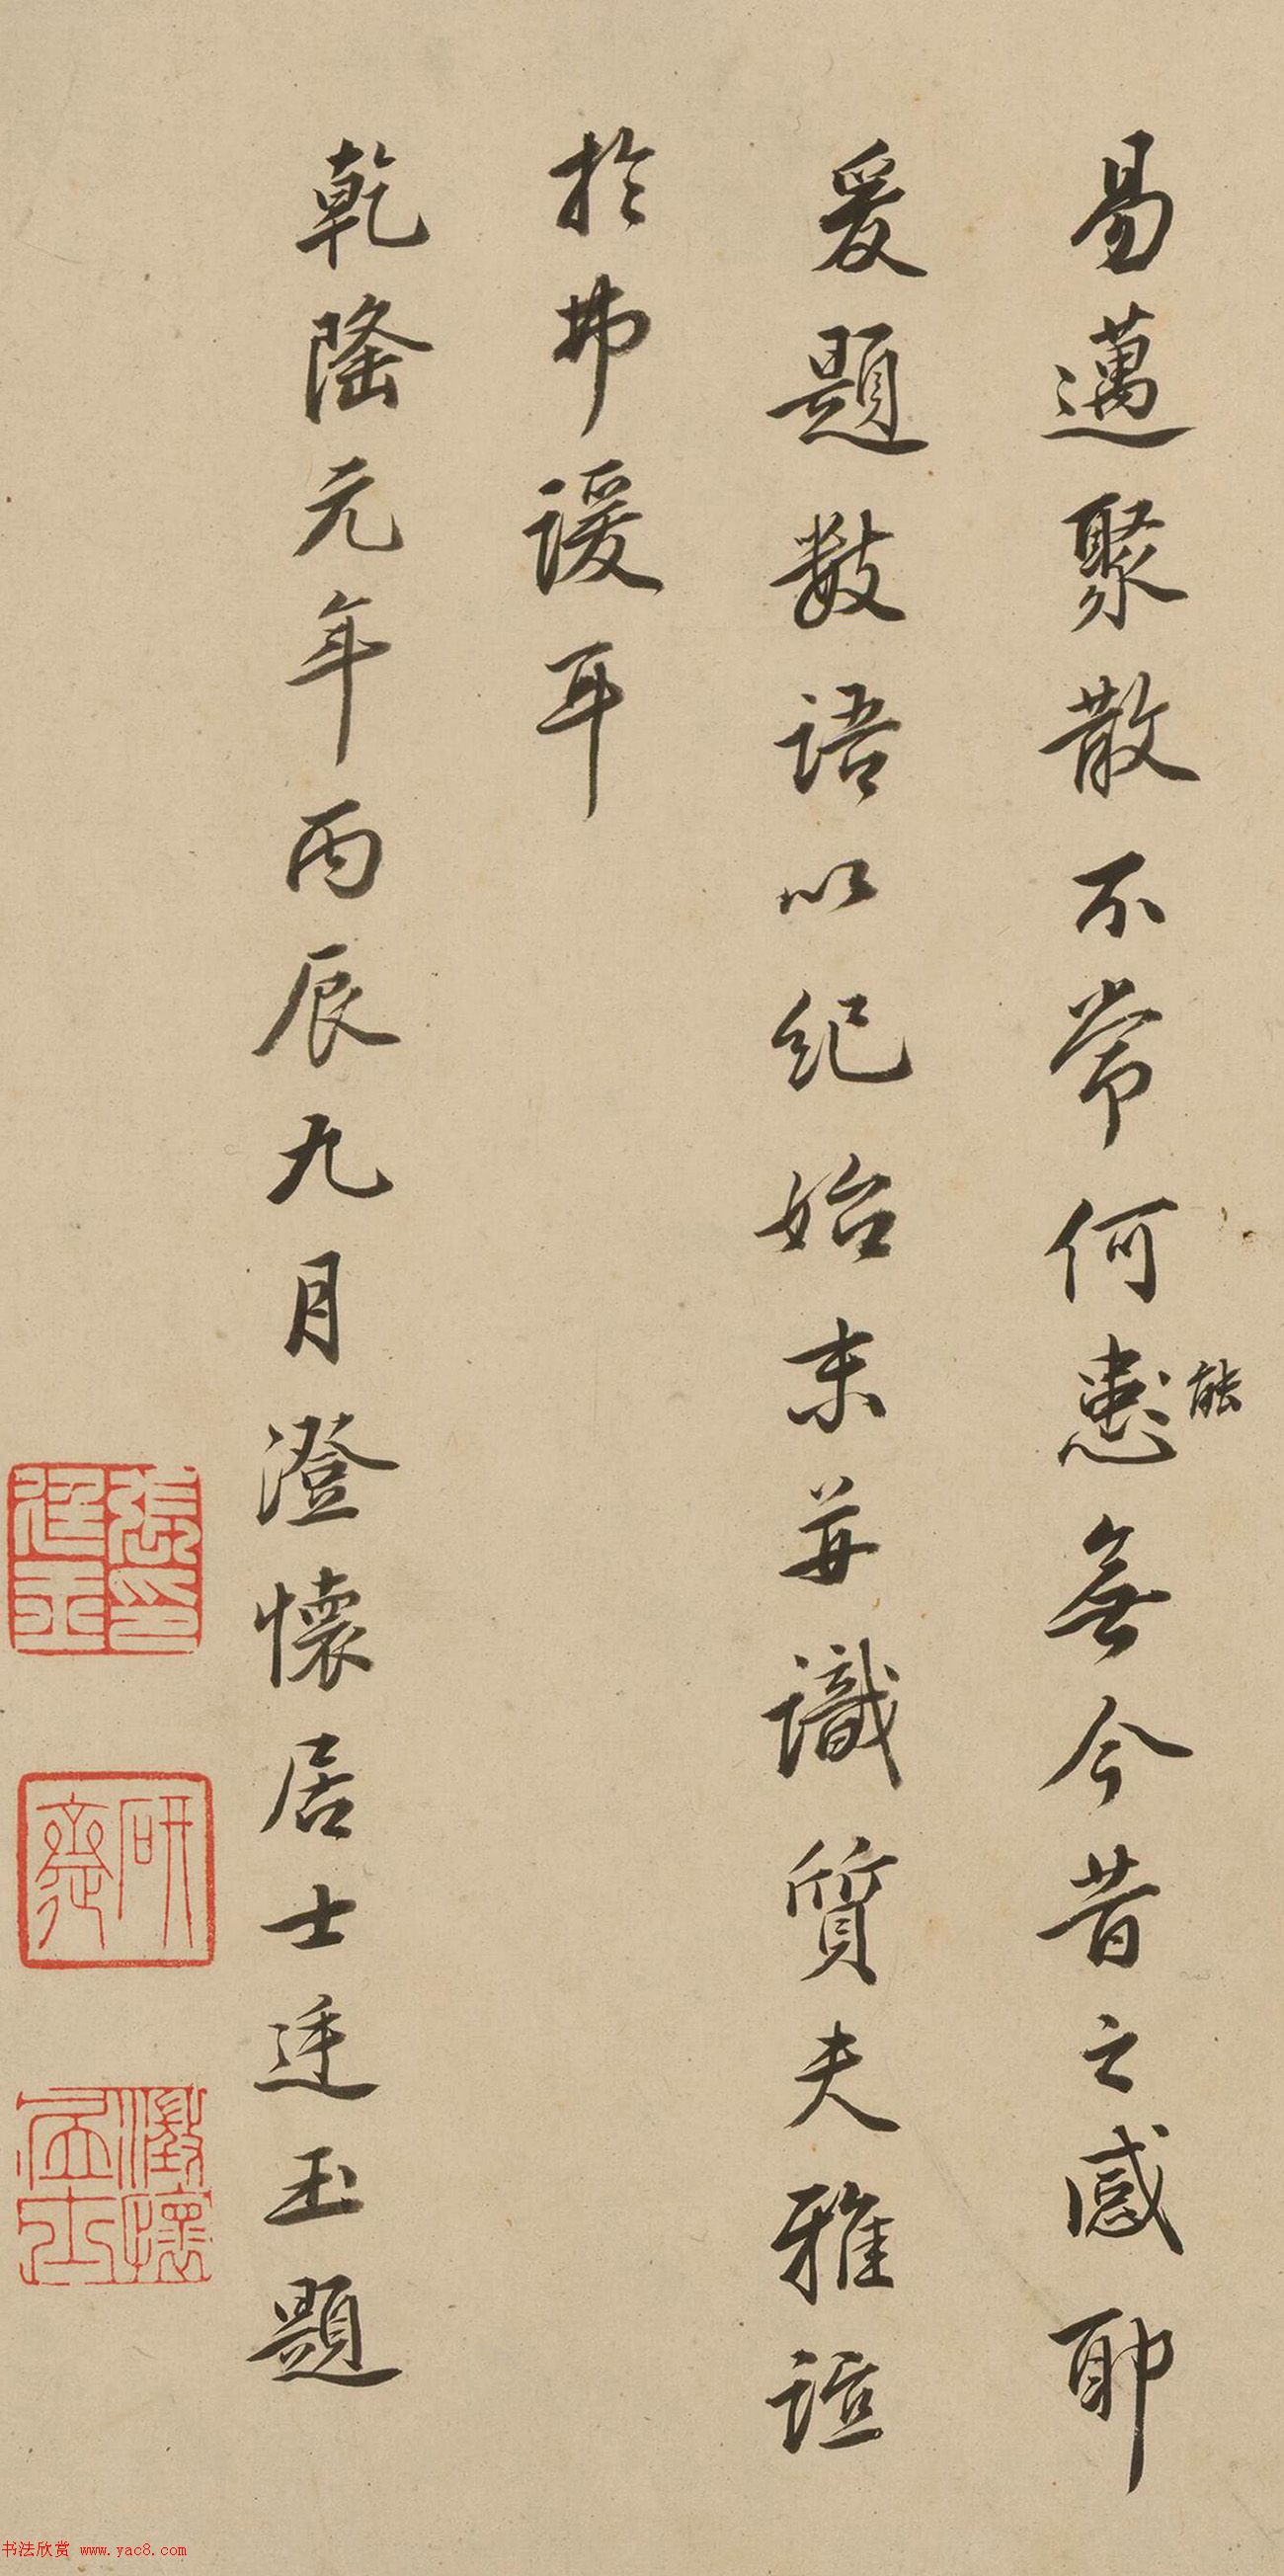 易邁聚散不常何能患無今昔之感耶
爰題數語以紀始末并識質夫雅誼
於弗諼耳
乾隆元年丙辰九月澄懷居士廷玉題
張印廷玉
研齋
澂懷居士
书法欣赏 www.yac8.com